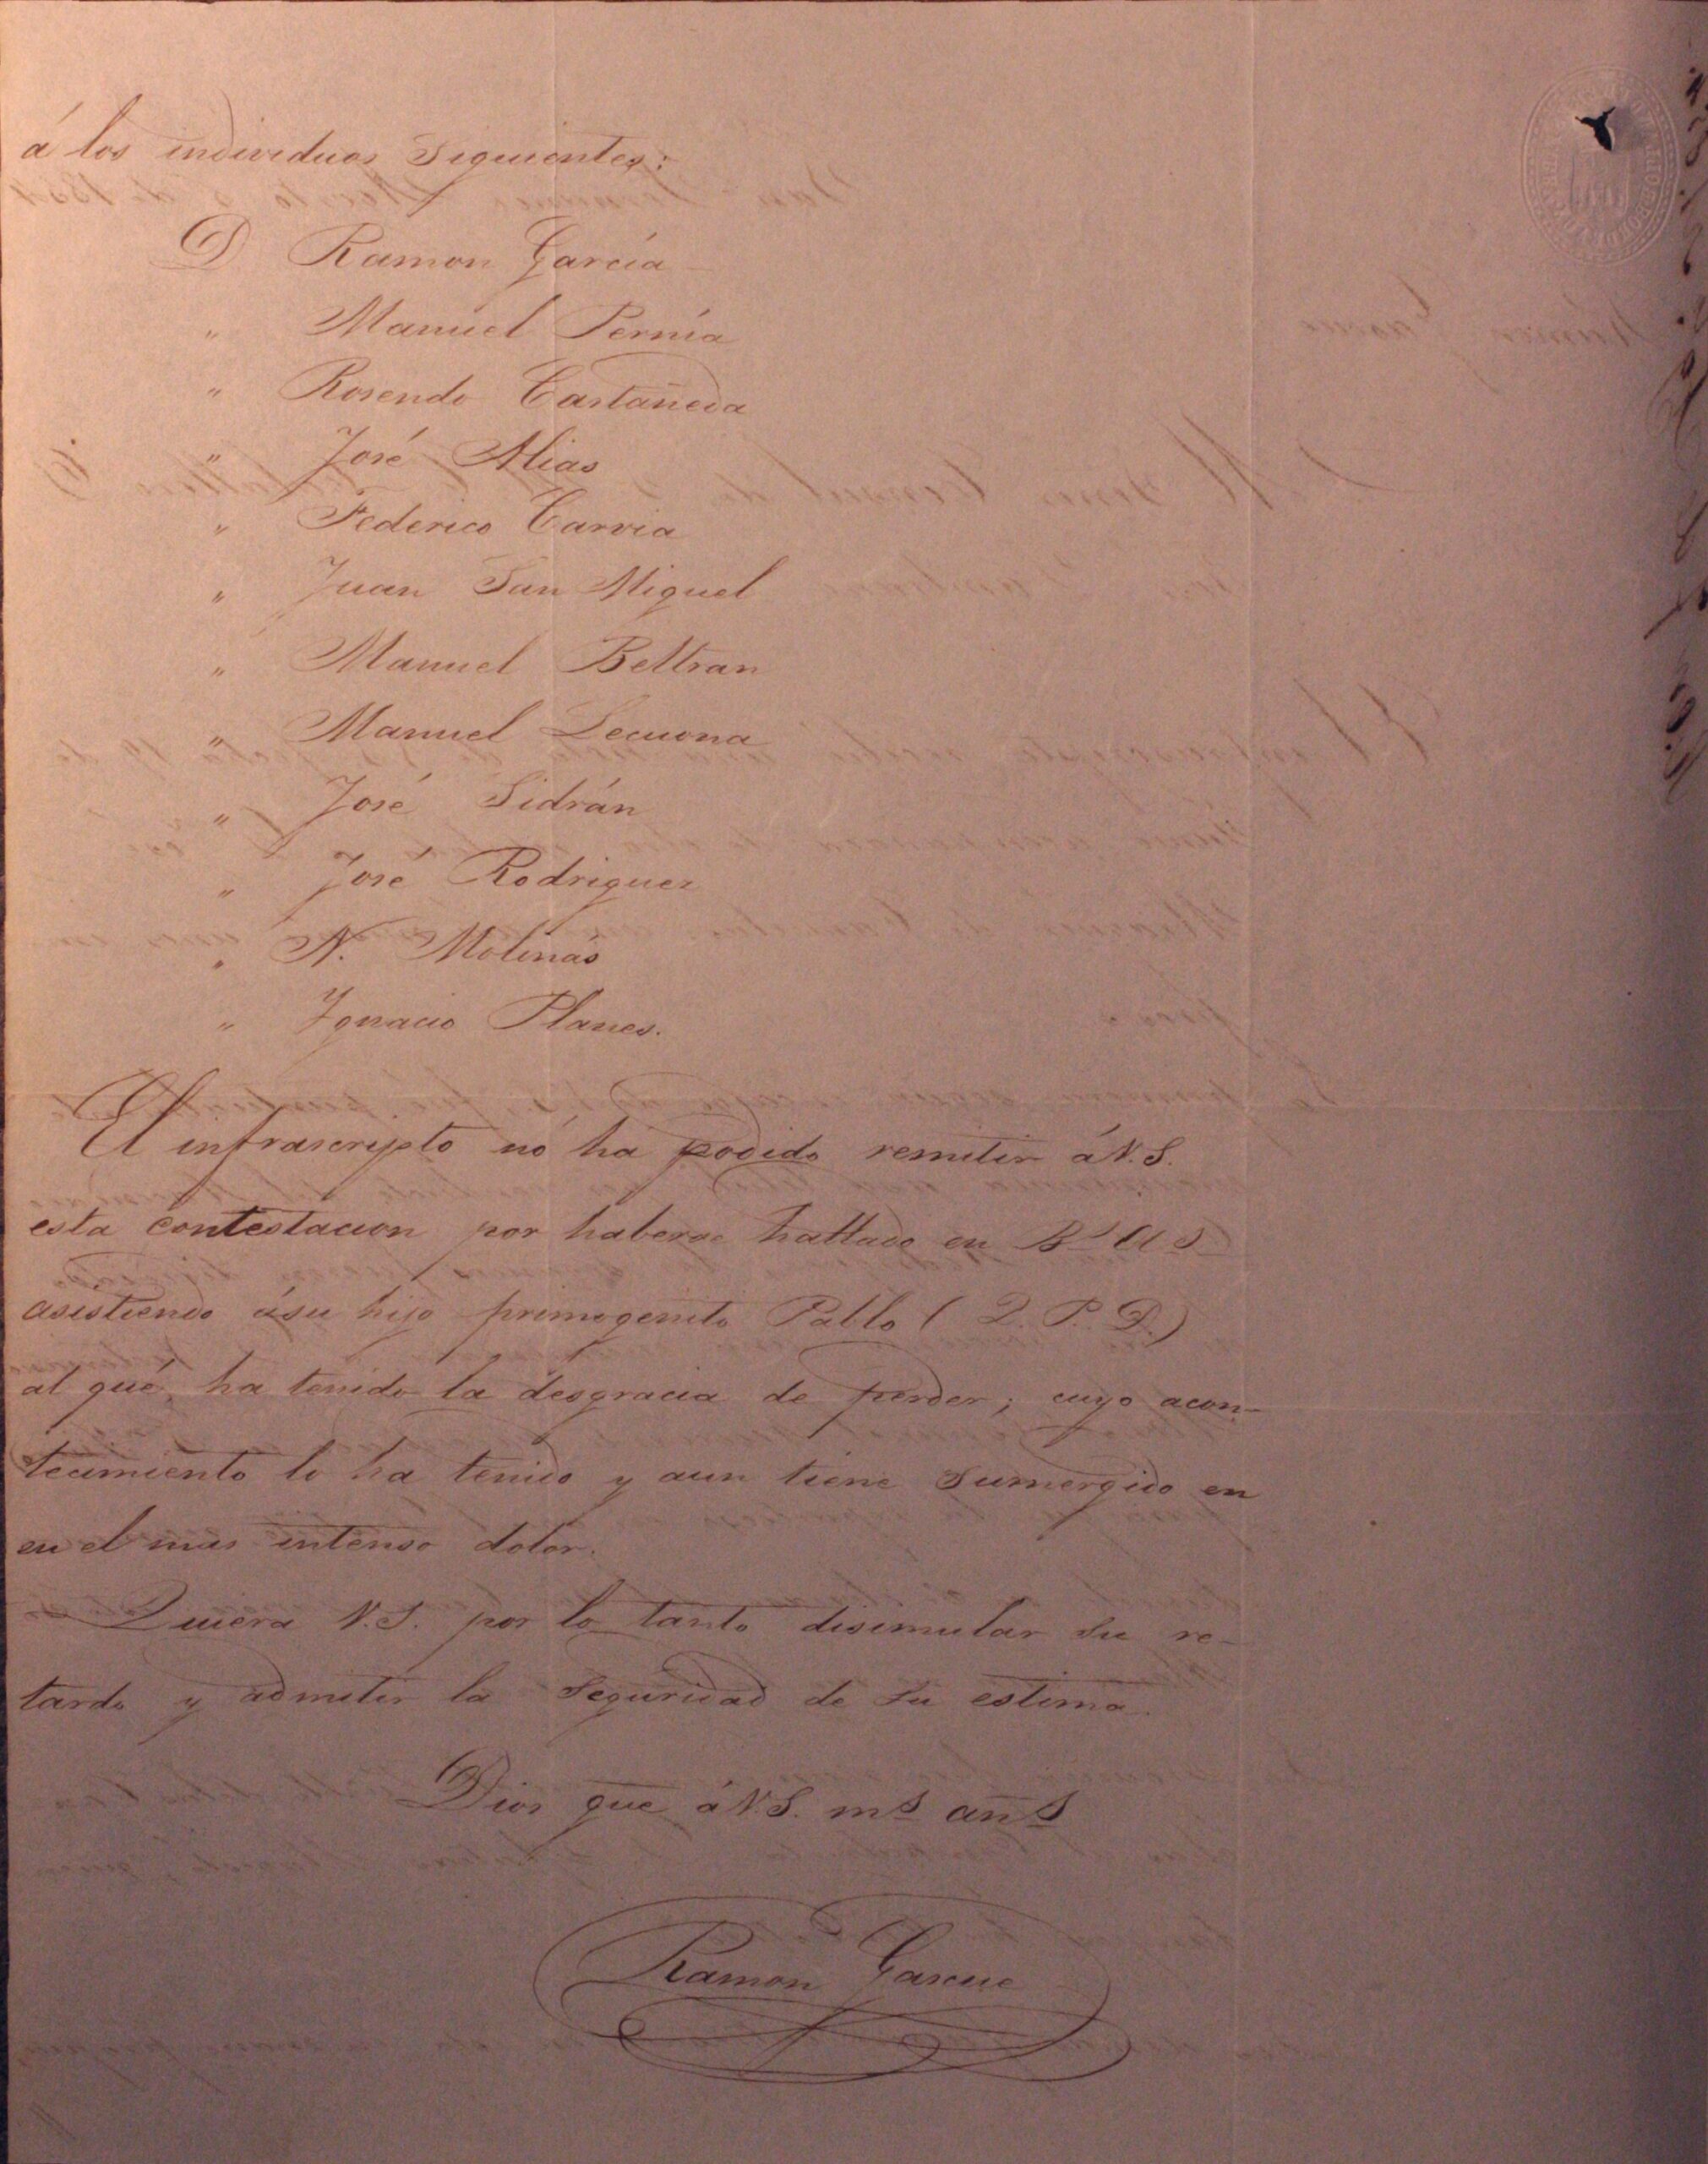 á los individuos Siguientes:
D Ramon García
" Manuel Pernía
" Rosendo Castañeda
" José Alias
" Federico Carvia
" Juan San Miguel
" Manuel Beltran
" Manuel Lecuona
" José Sidrán
" José Rodriguez
" N. Molinás
" Ygnacio Planes.
El infrascripto nó ha podido remitir á V.S.
esta contestacion por haberse hallado en Bs As
asistiendo á su hijo primogenito Pablo (Q. P. D.)
al qué, ha tenido la desgracia de perder; cuyo acon-
tecimiento lo ha tenido y aun tiene Sumergido en
en el mas intenso dolor.
Quiera V.S. por lo tanto disimular su re-
tardo y admitir la Seguridad de su estima.
Dios gue á V.S. ms añs
Ramon Gascue